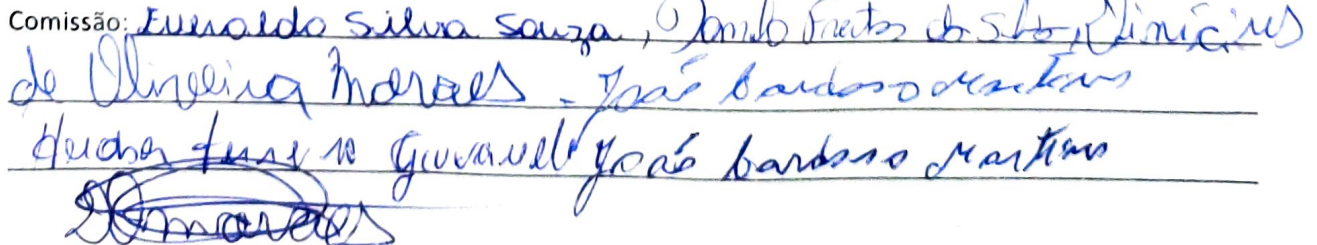 Comissão: Everaldo Silva Souza, Danilo Freitas da Silva, Vinicius
de Oliveira Moraes - João Cardoso Martins
João Cardoso Martins
Moraes